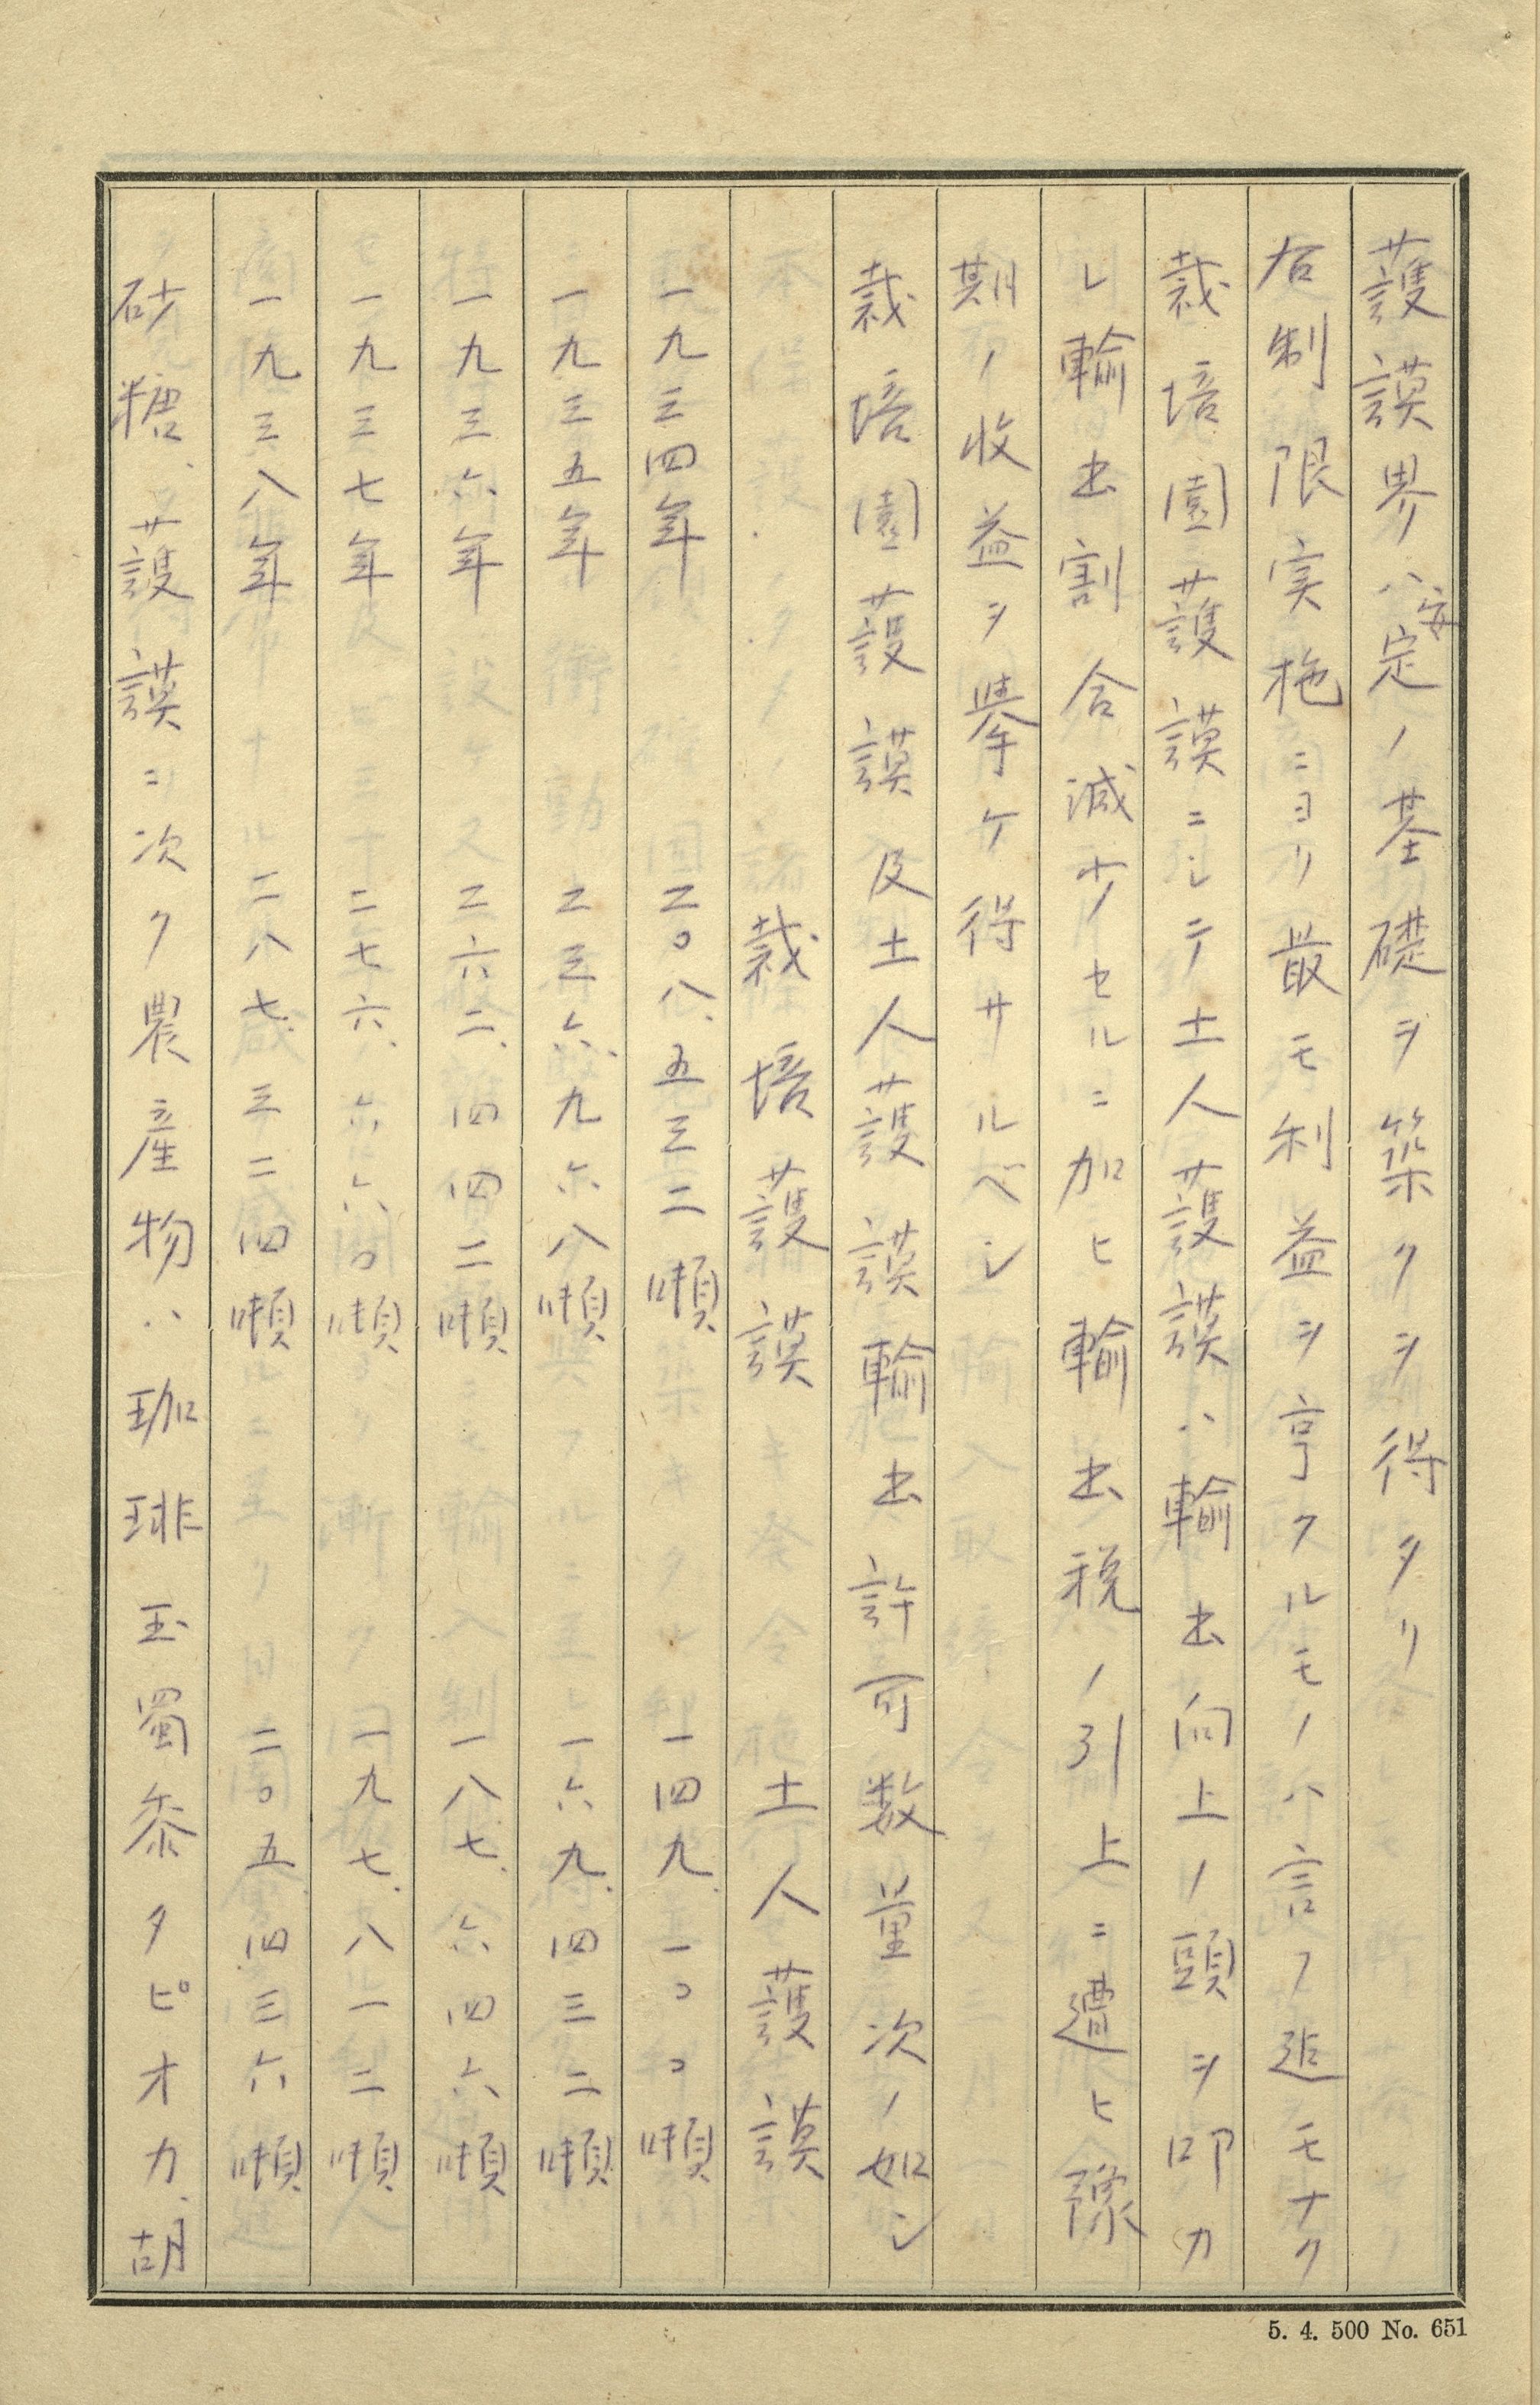 護謨界ハ安定ノ基礎ヲ築クヲ得タリ
右制限実施ニヨリ最モ利益ヲ享クルモノハ言フ迄モナク
栽培園護謨ニシテ土人護謨ハ輸出向上ノ頭ヲ叩カ
レ輸出割合減少セルニ加ヒ輸出税ノ引上ニ遭ヒ予
期ノ收益ヲ挙ケ得サルベシ
栽培園護謨及土人護謨輸出許可数量次ノ如シ
栽培護謨 土人護謨
一九三四年 二〇八、五三二噸 一四九、一〇〇噸
一九三五年 二三六、九六八噸 一六九、四三二噸
一九三六年 二六二、四四二噸 一八七、六四六噸
一九三七年 二七六、六六〇噸 一九七、八一二噸
一九三八年 二八七、三二四噸 二〇五、四三六噸
砂糖、護謨ニ次ク農産物ハ珈琲玉蜀黍タピオカ、胡
5. 4. 500 No. 651